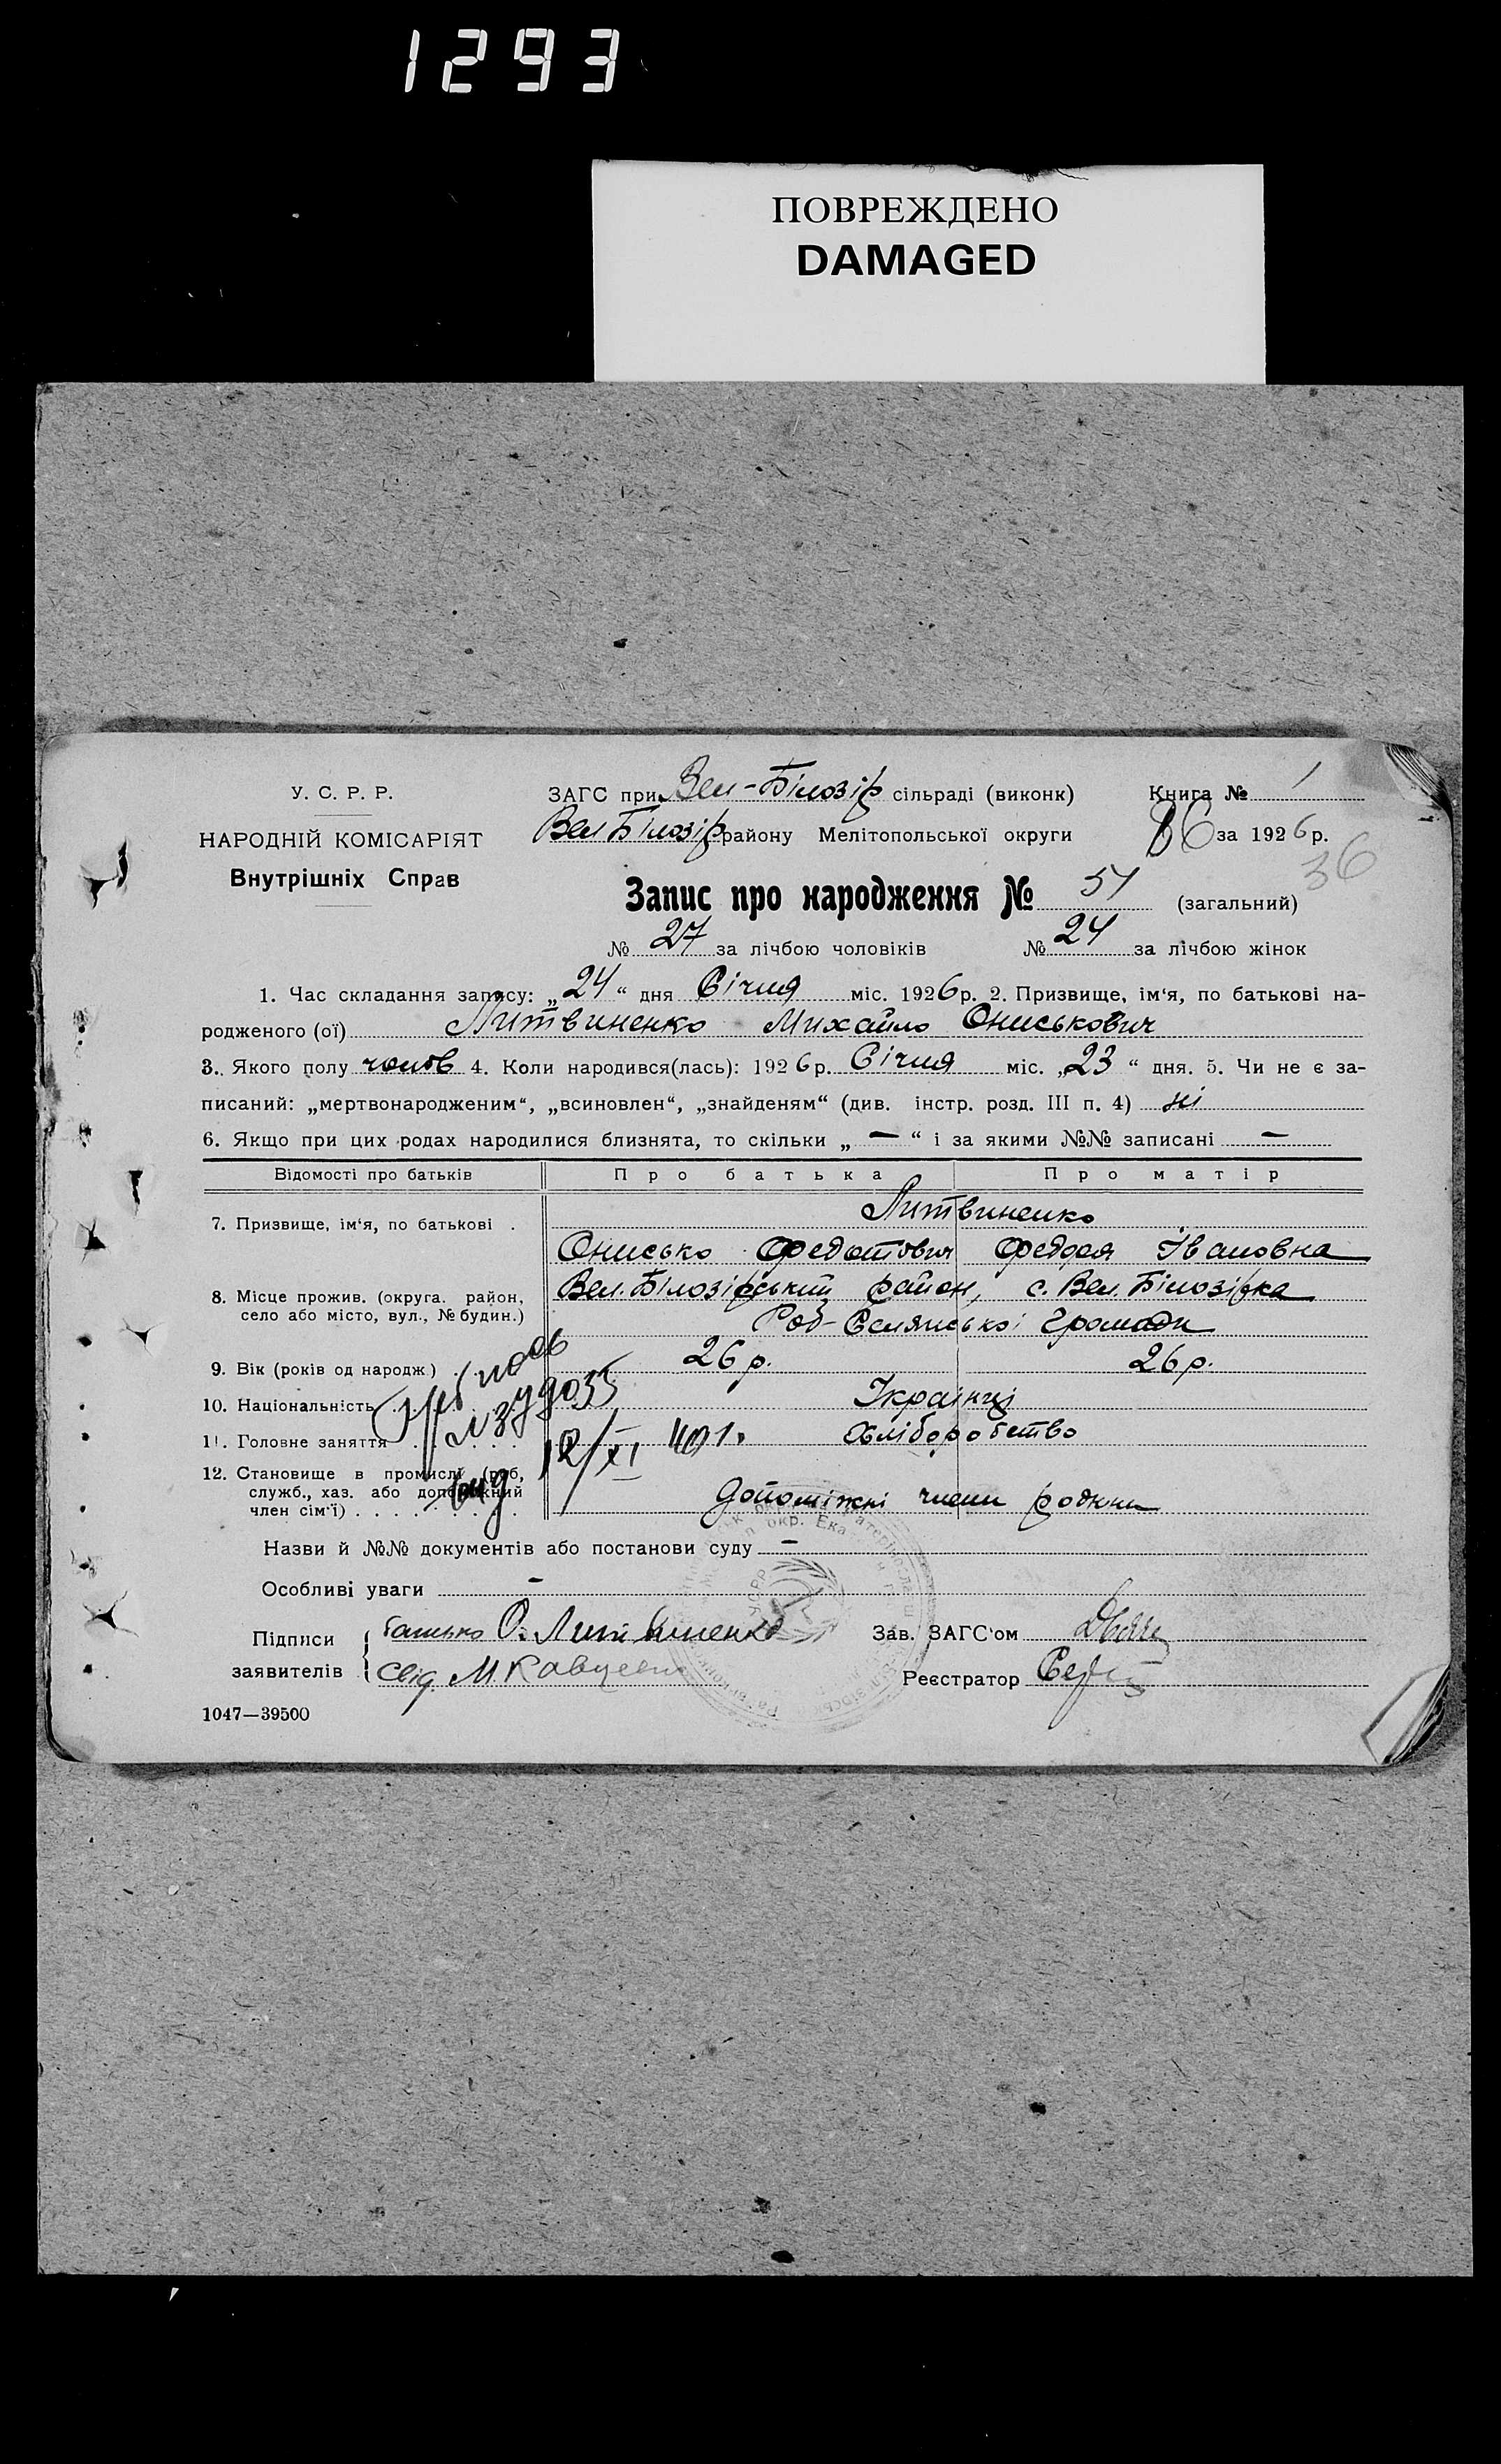 1293
ПОВРЕЖДЕНО
DAMAGED
У. С. Р. Р.
НАРОДНІЙ КОМІСАРІЯТ
Внутрішніх Справ
ЗАГС при Вел-Білозір сільраді (виконк) Книга № 1
Вел Білозір району Мелітопольської округи 86 за 1926 р.
36
Запис про народження № 51 (загальний)
№ 27 за лічбою чоловіків № 24 за лічбою жінок
1. Час складання запису: „24“ дня Січня міс. 1926 р. 2. Призвище, ім‘я, по батькові на-
родженого (ої) Литвиненко Михайло Ониськович
3. Якого полу чолов 4. Коли народився(лась): 1926 р. Січня міс. „23“ дня. 5. Чи не є за-
писаний: „мертвонародженим“, „всиновлен“, „знайденям“ (див. інстр. розд. III п. 4) ні
6. Якщо при цих родах народилися близнята, то скільки „—“ і за якими №№ записані —
Відомості про батьків Про батька Про матір
7. Призвище, ім‘я, по батькові . Литвиненко
Онисько Федотович Федора Івановна
8. Місце прожив. (округа. район, село або місто, вул., № будин.) Вел. Білозірський район, с. Вел. Білозірка
Селянської Громади
9. Вік (років од народж.) 26 р. 26 р.
10. Національність Українці
11. Головне заняття Хліборобство
12/XI 40 г.
12. Становище в промислі (роб,
служб., хаз. або допоміжний
член сім‘ї) . . . . допоміжні члени родини
Назви й №№ документів або постанови суду —
Особливі уваги —
Підписи заявителів { батько О. Литвиненко
свід. М.
Зав. ЗАГС‘ом
Реєстратор
1047—39500